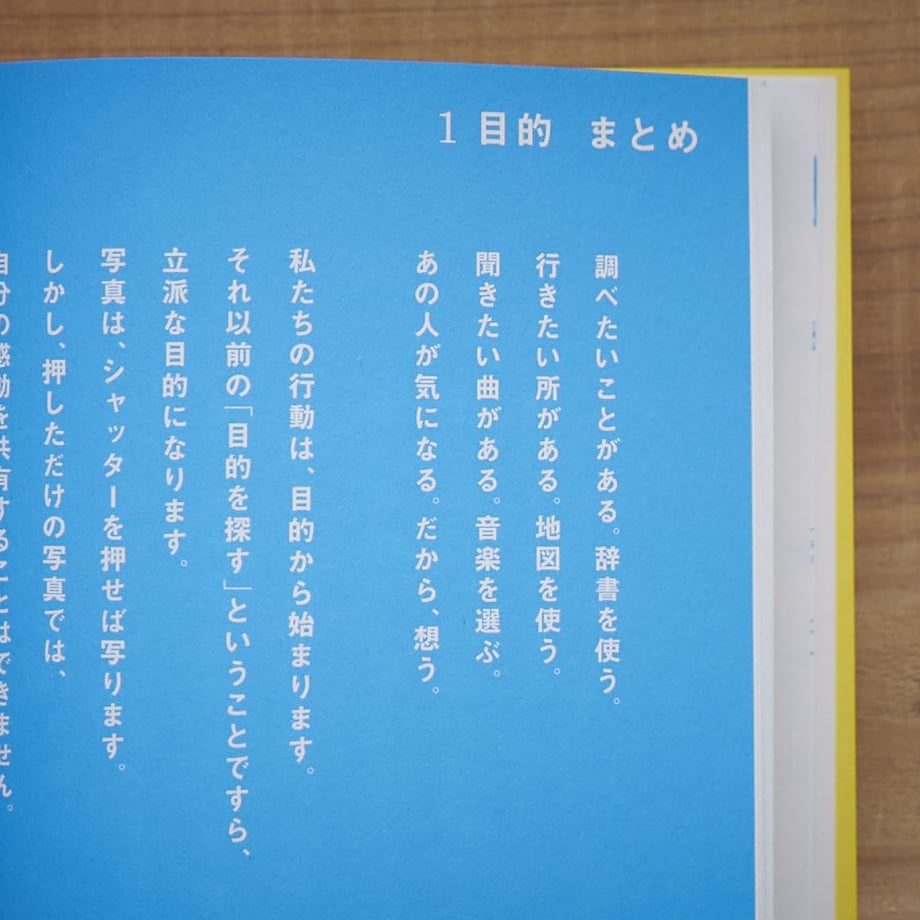 1 目的　まとめ
調べたいことがある。辞書を使う。
行きたい所がある。地図を使う。
聞きたい曲がある。音楽を選ぶ。
あの人が気になる。だから、想う。
私たちの行動は、目的から始まります。
それ以前の「目的を探す」ということですら、
立派な目的になります。
写真は、シャッターを押せば写ります。
しかし、押しただけの写真では、
自分の感動を共有することはできません。